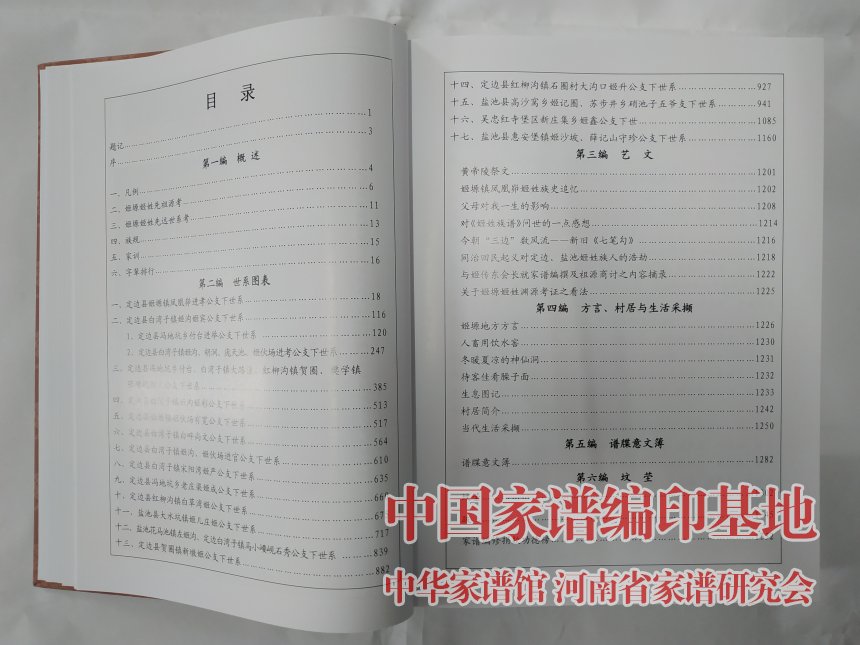 目 录
题记…………1
序…………3
第一编 概 述
一、凡例…………4
二、姬塬姬姓先祖源考…………6
三、姬塬姬姓先达世系考…………11
四、族规…………13
五、家训…………15
六、字辈排行…………16
第二编 世系图表
一、定边县姬塬镇凤凰峁进孝公支下世系…………18
二、定边县白湾子镇姬沟姬宾公支下世系…………116
1、定边县冯地坑乡付台进举公支下世系…………120
2、定边县白湾子镇姬沟、胡洞、庞天池、姬伏场进考公支下世系…………247
三、定边县冯地坑乡付台、白湾子镇大 红柳沟镇贺圈、 学镇
公支下世系…………385
四、定边县 公支下世系…………513
五、定边县 公支下世系…………517
六、定边县白湾子镇 公支下世系…………564
七、定边县白湾子镇姬沟、姬伏场进官公支下世系…………610
八、定边县白湾子镇宋阳湾姬产公支下世系…………635
九、定边县冯地坑乡老庄梁姬成公支下世系…………66
十、定边县红柳沟镇白草湾姬公支下世系…………67
十一、盐池县大水坑镇姬儿庄姬公支下世系…………717
十二、盐池花马池镇左姬沟、定边白湾子镇马小嶂岘石秀公支下世系…………839
十三、定边县贺圈镇新墩姬公支下世系…………882
十四、定边县红柳沟镇石圈村大沟口姬升公支下世系…………927
十五、盐池县高沙窝乡姬记圈、苏步井乡硝池子五爷支下世系…………941
十六、吴忠红寺堡区新庄集乡姬鑫公支下世…………1085
十七、盐池县惠安堡镇姬沙坡、薛记山守珍公支下世系…………1160
第三编 艺 文
黄帝陵祭文…………1201
姬塬镇凤凰峁姬姓族史追忆…………1202
父母对我一生的影响…………1208
对《姬姓族谱》问世的一点感想…………1214
今朝“三边”数风流——新旧《七笔勾》…………1216
同治回民起义对定边、盐池姬姓族人的浩劫…………1218
与姬传东会长就家谱编撰及祖源商讨之内容摘录…………1222
关于姬塬姬姓渊源考证之看法…………1225
第四编 方言、村居与生活采撷
姬塬地方方言…………1226
人畜用饮水窖…………1230
冬暖夏凉的神仙洞…………1231
待客佳肴臊子面…………1232
生息图记…………1233
村居简介…………1242
当代生活采撷…………1250
第五编 谱牒意文簿
谱牒意文簿…………1282
第六编 坟 茔
中国家谱编印基地
中华家谱馆 河南省家谱研究会